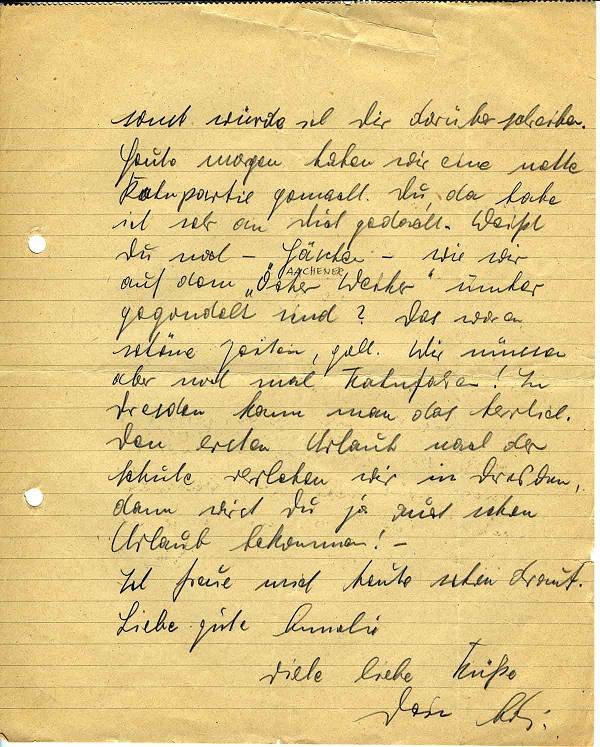 sonst würde ich Dir darüber schreiben.
Heute morgen haben wir eine nette
Kahnpartie gemacht. Du, da habe
ich sehr an Dich gedacht. Weißt
Du noch – – wie wir
AACHENER
auf dem „ Weiher“ umher
gegondelt sind? Das waren
schöne Zeiten, gell. Wir müssen
aber noch mal Kahnfahren! In
Dresden kann man das herrlich.
Den ersten Urlaub nach der
Schule verleben wir in Dresden,
dann wirst Du ja auch schon
Urlaub bekommen! –
Ich freue mich heute schon drauf.
Liebe gute
Viele liebe Küße
Dein